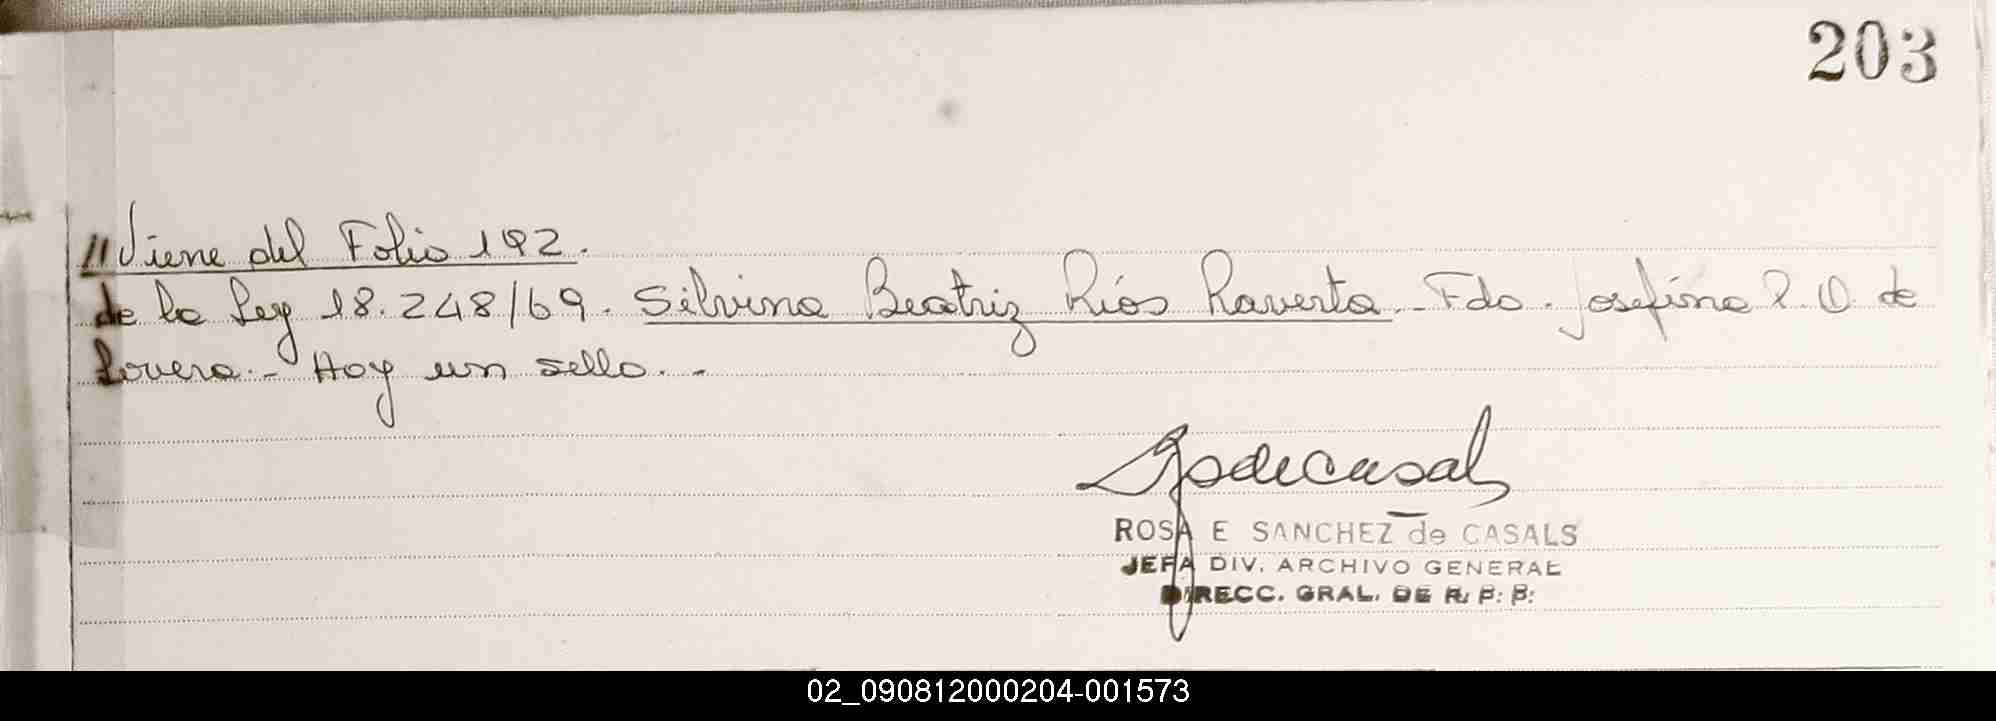 203
//Viene del Folio 192.
de la Ley 18.248/69. Silvina Beatriz Ríos Raverta.- Fdo. Josefina P. O. de
Lovera.- Hay un sello.-
ROSA E SANCHEZ de CASALS
JEFA DIV. ARCHIVO GENERAL
DIRECC. GRAL. DE R. P. P.
02_090812000204-001573